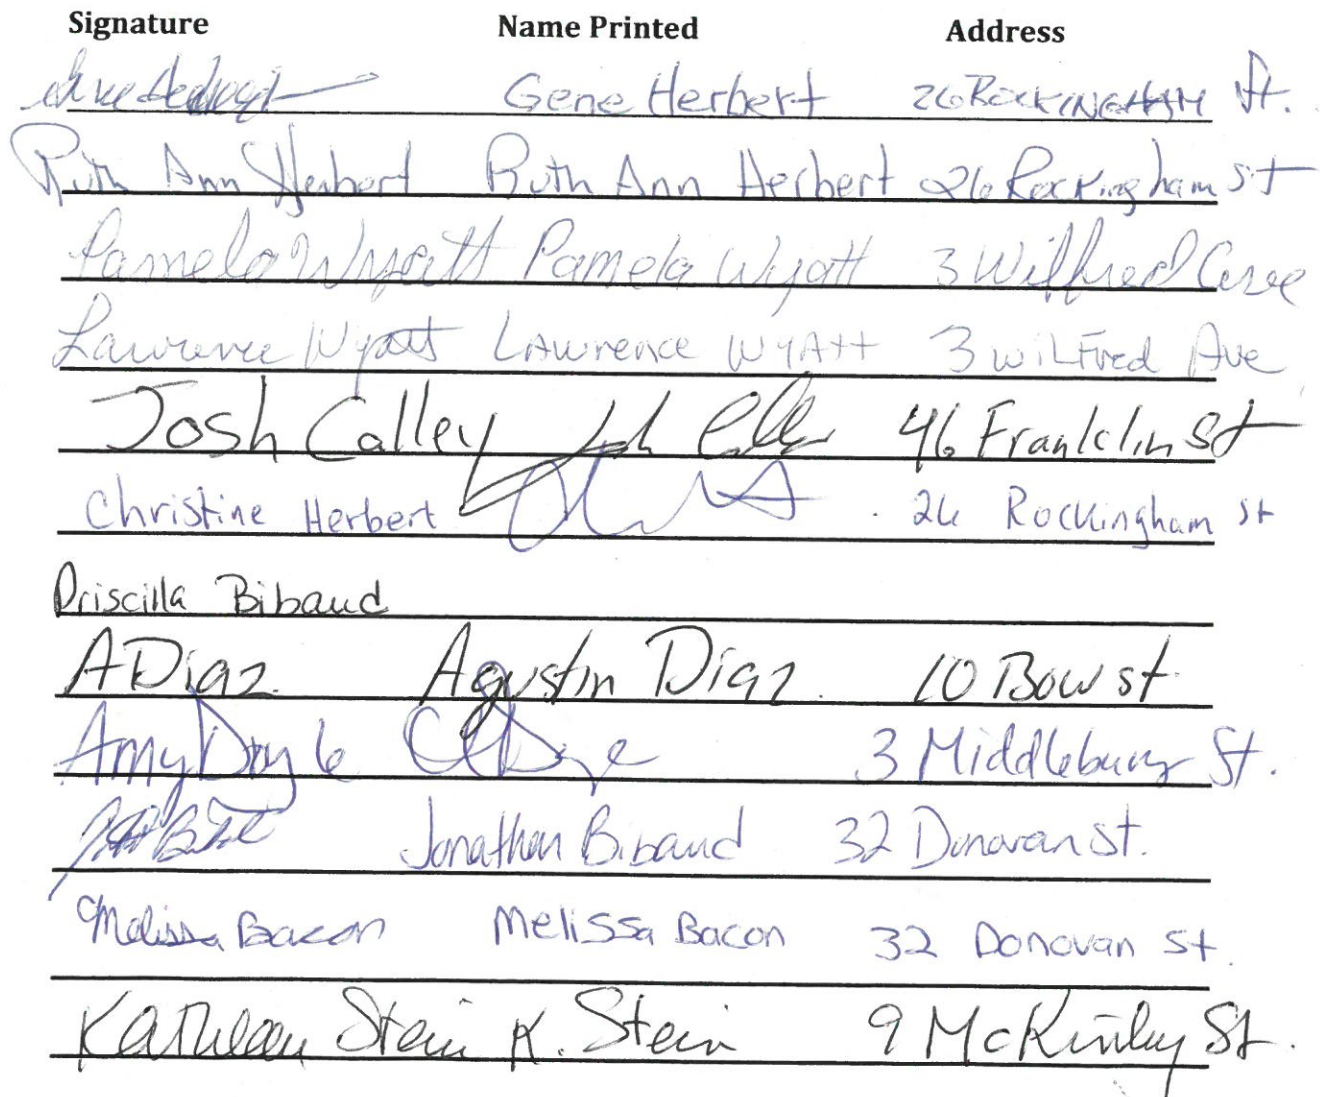 Signature Name Printed Address
Gene Herbert 26 ROCKINGHAM St.
Ruth Ann Herbert Ruth Ann Herbert 26 Rockingham St
Pamela Wyatt Pamela Wyatt 3 Wilfred Ave
Lawrence Wyatt LAwrence WYAtt 3 wilFred Ave
Josh Calley 46 Franklin St
Christine Herbert 26 Rockingham St
Priscilla Bibaud
A Diaz Agustin Diaz. 10 Bow st.
Amy Doyle 3 Middlebury St.
Jonathan Bibaud 32 Donovan St.
Melissa Bacon Melissa Bacon 32 Donovan St.
Kathleen Stein K. Stein 9 McKinley St.